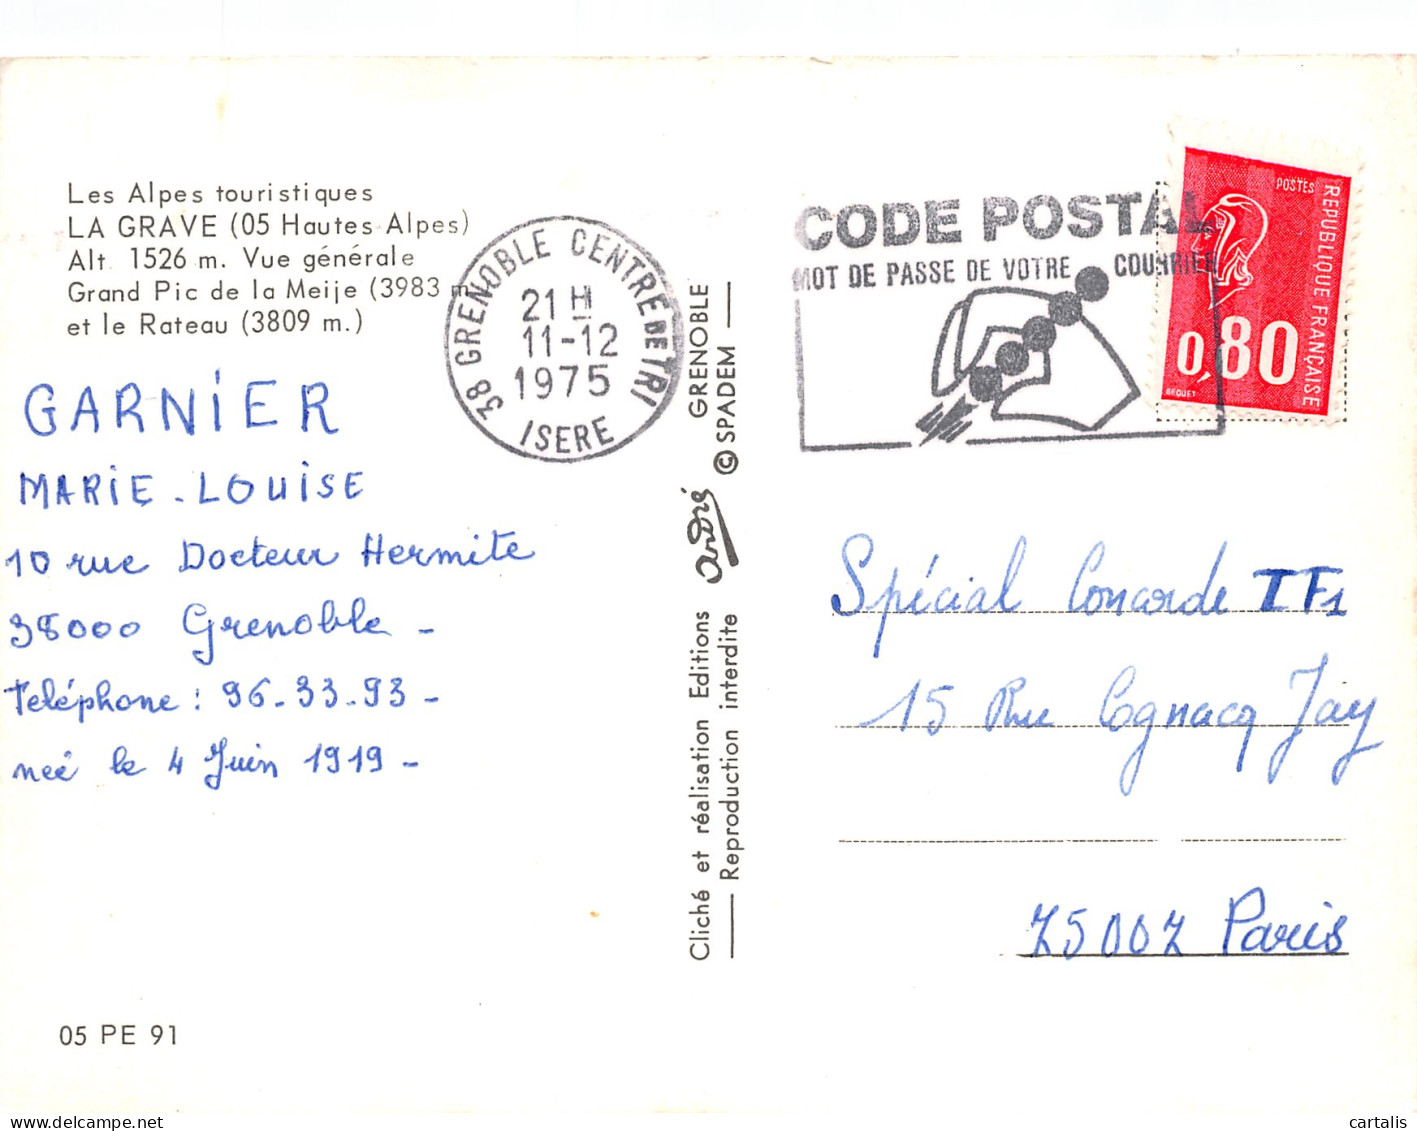 Les Alpes touristiques
LA GRAVE (05 Hautes-Alpes)
Alt. 1526 m. Vue générale
Grand Pic de la Meije (3983 m
et le Rateau (3809 m.)
GARNIER
MARIE-LOUISE
10 rue Docteur Hermite
38000 Grenoble -
Téléphone : 96-33-93 -
neé le 4 Juin 1919 -
05 PE 91
38 GRENOBLE CENTRE DE TRI
21 H
11-12
1975
ISERE
Cliché et réalisation Editions André GRENOBLE
Reproduction interdite © SPADEM
CODE POSTAL
MOT DE PASSE DE VOTRE COURRIER
POSTES
REPUBLIQUE FRANÇAISE
0,80
BEQUET
Spécial Concorde TF1
15 Rue Cognacq Jay
75007 Paris
cartalis